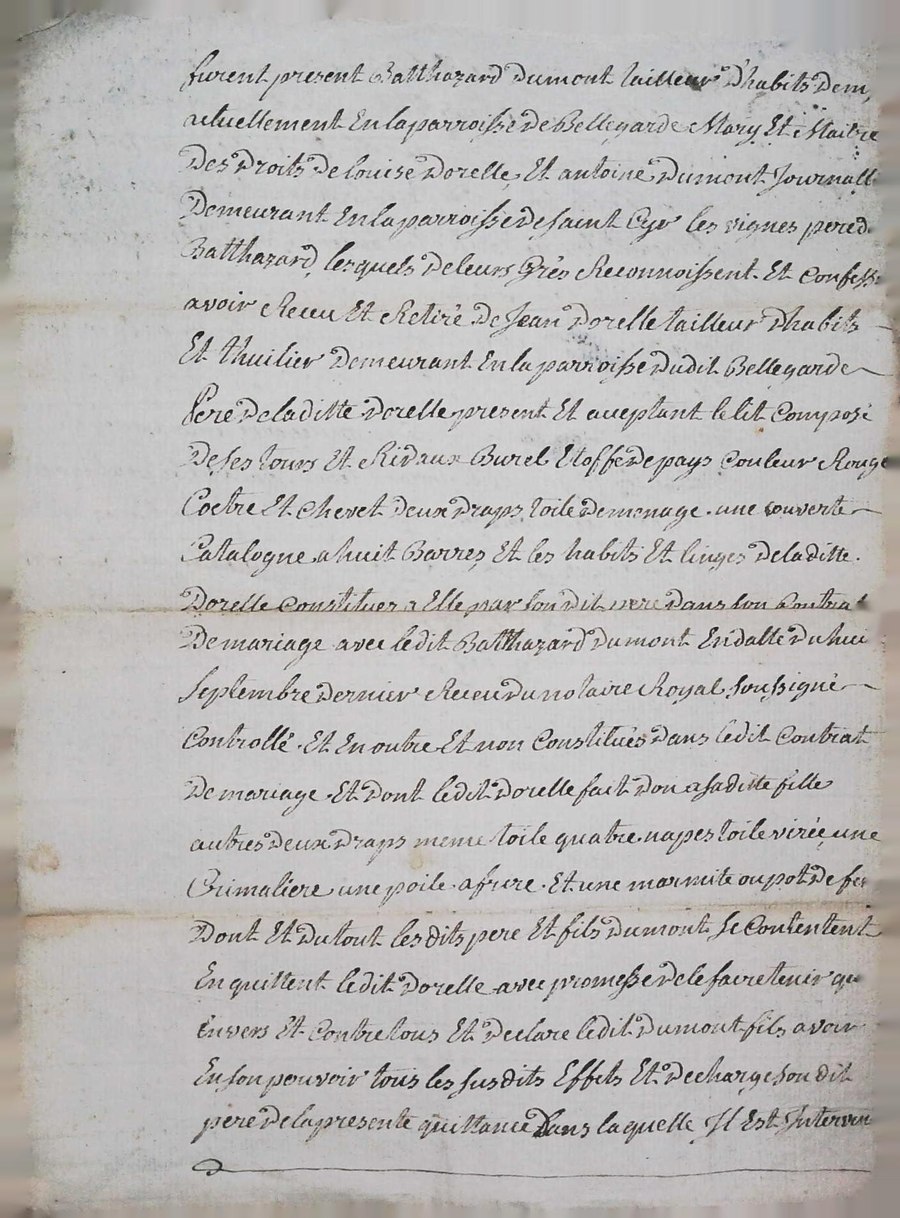 furent present Batthazard Dumont tailleur Dhabits Dem
actuellement En la parroisse de Bellegarde Mary Et Maitre
Des Droits De Louise Dorelle, Et antoine Dumont Journall
Demeurant En la parroisse de saint Cyr les vignes pere d
Batthazard, lesquels de leurs Grés Reconnoissent Et confess
avoir Receu Et Retiré De Jean Dorelle tailleur Dhabits
Et thuilier Demeurant En la parroisse Dudit Bellegarde
Pere De la ditte Dorelle present Et aceptant le lit Composé
De ses tours Et Rideaux Burel Etoffe de pays Couleur Rouge
Coetre Et Chevet Deux Draps toile De menage . une couverte
Catalogne a huit Barres, Et les habits Et linges De la ditte .
Dorelle Constitues a Elle par son Dit pere Dans son Contrat
De mariage avec le dit Batthazard Dumont En datte Du huit
septembre Dernier Receu Du notaire Royal soussigné
Controllé . Et En outre Et non Constitués Dans le dit Contrat
De mariage . Et Dont le dit Dorelle fait Don a sa ditte fille
autres Deux Draps meme toile quatre napes toile virée une
Crimaliere une poile a frire . Et une marmite ou pot De fer
Dont Et Du tout les dits pere Et fils Dumont se Contentent
En quittent le dit Dorelle avec promesse De le faire tenir qu
Envers Et Contre tous Et Declare le dit Dumont fils avoir
En son pouvoir tous les susdits Effets Et Decharge son dit
pere De la presente quittance Dans laquelle Il Est Interven